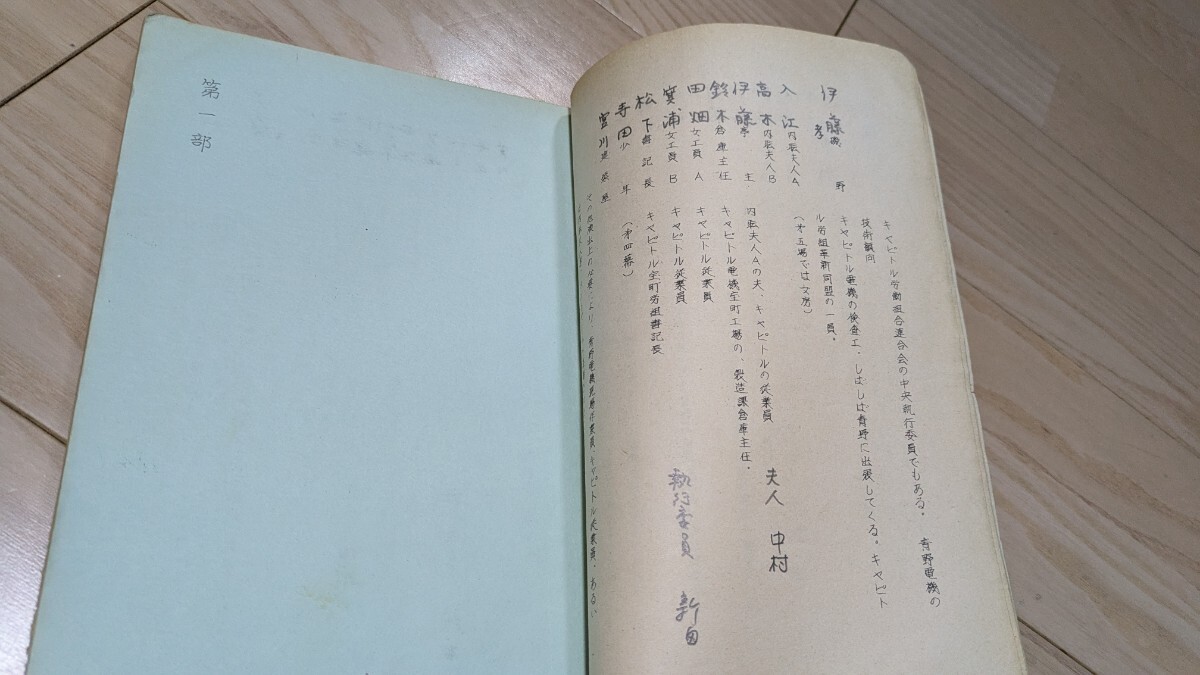 キャピトル労働組合連合会の中央執行委員でもある。 青野電機の
技術顧問
伊藤 野 キャピトル電機の検査工、しばしば青野に出張してくる。キャピト
孝
ル労組革新同盟の一員。
入江 内臣夫人A (第五場では女房)
高木 内臣夫人B
伊藤 亭主 内臣夫人Aの夫、キャピトルの従業員 夫人 中村
鈴木 倉庫主任 キャピトル電機宝町工場の、製造課倉庫主任。
田畑 女工員A キャピトル従業員
箕浦 女工員B キャピトル従業員 執行委員 新田
松下 書記長 キャピトル宝町労組書記長
寺田 少年 (第四幕)
宮川
キャピトル従業員、あるい
第一部